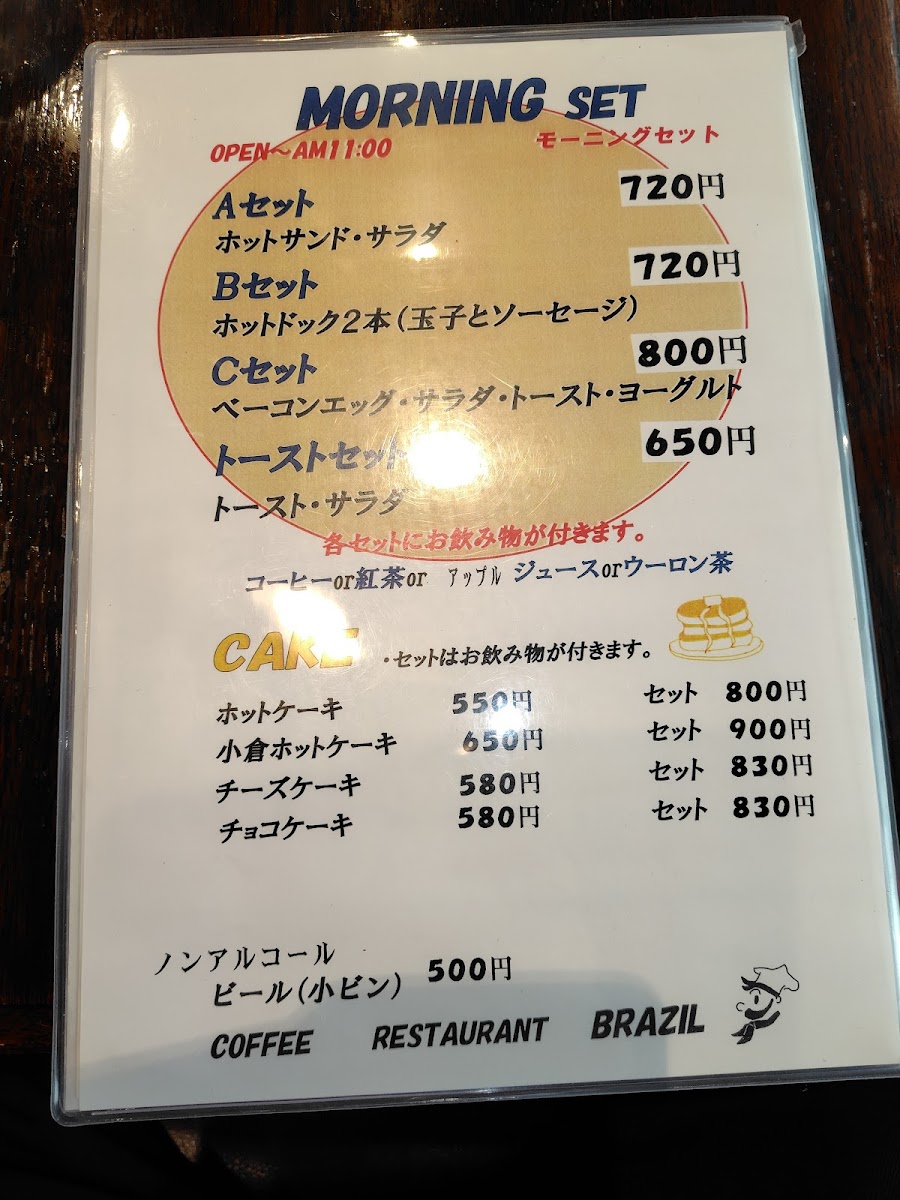 MORNING SET
OPEN～AM11:00 モーニングセット
Aセット 720円
ホットサンド・サラダ
Bセット 720円
ホットドック2本(玉子とソーセージ)
Cセット 800円
ベーコンエッグ・サラダ・トースト・ヨーグルト
トーストセット 650円
トースト・サラダ
各セットにお飲み物が付きます。
コーヒーor紅茶or アップル ジュースorウーロン茶
CAKE ・セットはお飲み物が付きます。
ホットケーキ 550円 セット 800円
小倉ホットケーキ 650円 セット 900円
チーズケーキ 580円 セット 830円
チョコケーキ 580円 セット 830円
ノンアルコール
ビール(小ビン) 500円
COFFEE RESTAURANT BRAZIL